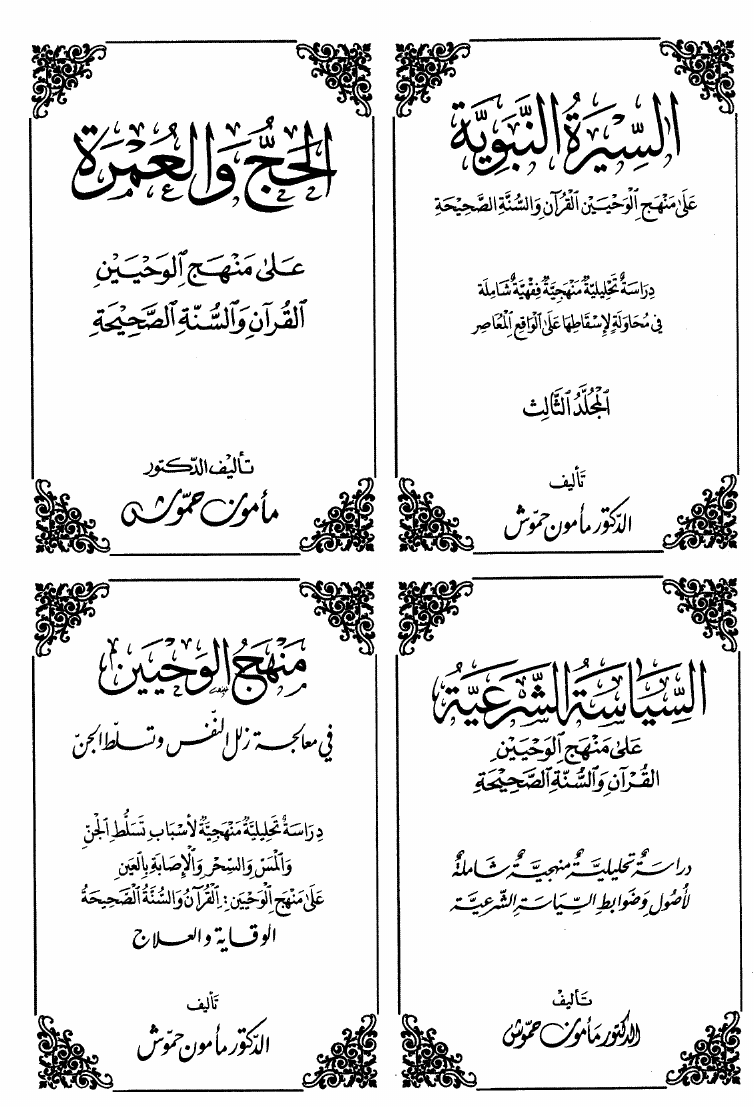 السِّيرَةُ النَّبَوِيَّة
عَلَىٰ مَنْهَجِ ٱلْوَحْيَيْنِ ٱلْقُرْآنِ وَٱلسُّنَّةِ ٱلصَّحِيْحَةِ
دِرَاسَةٌ تَحْلِيْلِيَّةٌ مَنْهَجِيَّةٌ فِقْهِيَّةٌ شَامِلَة
فِي مُحَاوَلَةٍ لِإِسْقَاطِهَا عَلَىٰ ٱلْوَاقِعِ ٱلْمُعَاصِرِ
ٱلْمُجَلَّدُ ٱلثَّالِث
تأليف
الدّكتور مأمون حمّوش
الحَجُّ وَالعُمْرَة
عَلَىٰ مَنْهَجِ ٱلوَحْيَيْنِ
ٱلقُرْآنِ وَٱلسُّنَّةِ ٱلصَّحِيْحَةِ
تأليف الدّكتور
مأمون حمّوش
السِّيَاسَةُ الشَّرْعِيَّةُ
عَلَىٰ مَنْهَجِ ٱلوَحْيَيْنِ
القُرْآنِ وَٱلسُّنَّةِ ٱلصَّحِيْحَةِ
دراسةٌ تحليليّةٌ منهجيّةٌ شاملةٌ
لأصُول وضوابط السّياسة الشّرعيّة
تأليف
الدكتور مأمون حمّوش
مَنْهَجُ الوَحْيَيْن
في معالجة زلل النّفس وتسلّط الجنّ
دِرَاسَةٌ تَحْلِيْلِيَّةٌ مَنْهَجِيَّةٌ لأَسْبَابِ تَسَلُّطِ ٱلْجِنِّ
وَٱلْمَسِّ وَٱلسِّحْرِ وَٱلْإِصَابَةِ بِٱلعَيْنِ
عَلَىٰ مَنْهَجِ ٱلْوَحْيَيْنِ : ٱلْقُرْآنُ وَٱلسُّنَّةُ ٱلصَّحِيْحَةُ
الوقاية والعلاج
تأليف
الدّكتور مأمون حمّوش